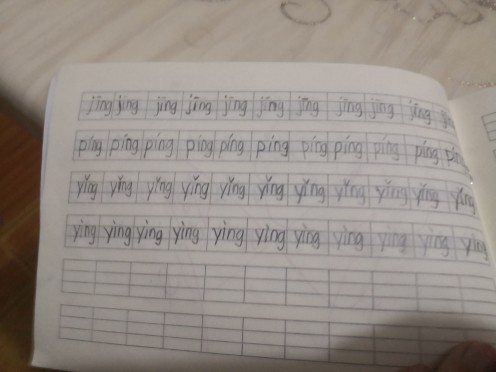 jīng jīng jīng jīng jīng jīng jīng jīng jīng jīng
píng píng píng píng píng píng píng píng píng píng píng
yǐng yǐng yǐng yǐng yǐng yǐng yǐng yǐng yǐng yǐng yǐng
yìng yìng yìng yìng yìng yìng yìng yìng yìng yìng yìng